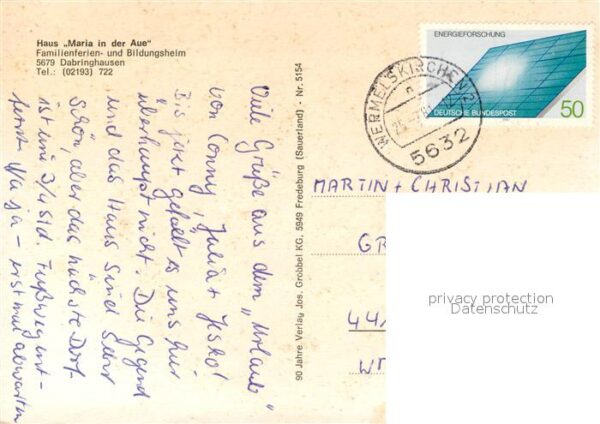 Haus „Maria in der Aue"
Familienferien- und Bildungsheim
5679 Dabringhausen
Tel.: (02193) 722
Viele Grüße aus dem „Urlaub"
von Conny, Julia + Jesko!
Bis jetzt gefällt es uns hier
überhaupt nicht. Die Gegend
und das Haus sind sehr
schön, aber das nächste Dorf
ist uns 3/4 Std. Fußweg ent-
fernt. Na ja – erst mal abwarten
90 Jahre Verlag Jos. Grobbel KG, 5949 Fredeburg (Sauerland) - Nr. 5154
ENERGIEFORSCHUNG
DEUTSCHE BUNDESPOST
50
WERMELSKIRCHEN 2
n
5632
MARTIN + CHRISTIAN
GR
44
privacy protection
Datenschutz